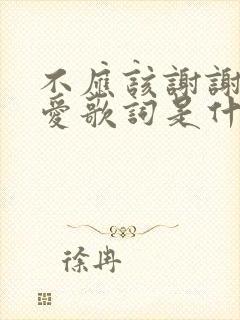 不應該謝謝
愛歌詞是什
徐冉